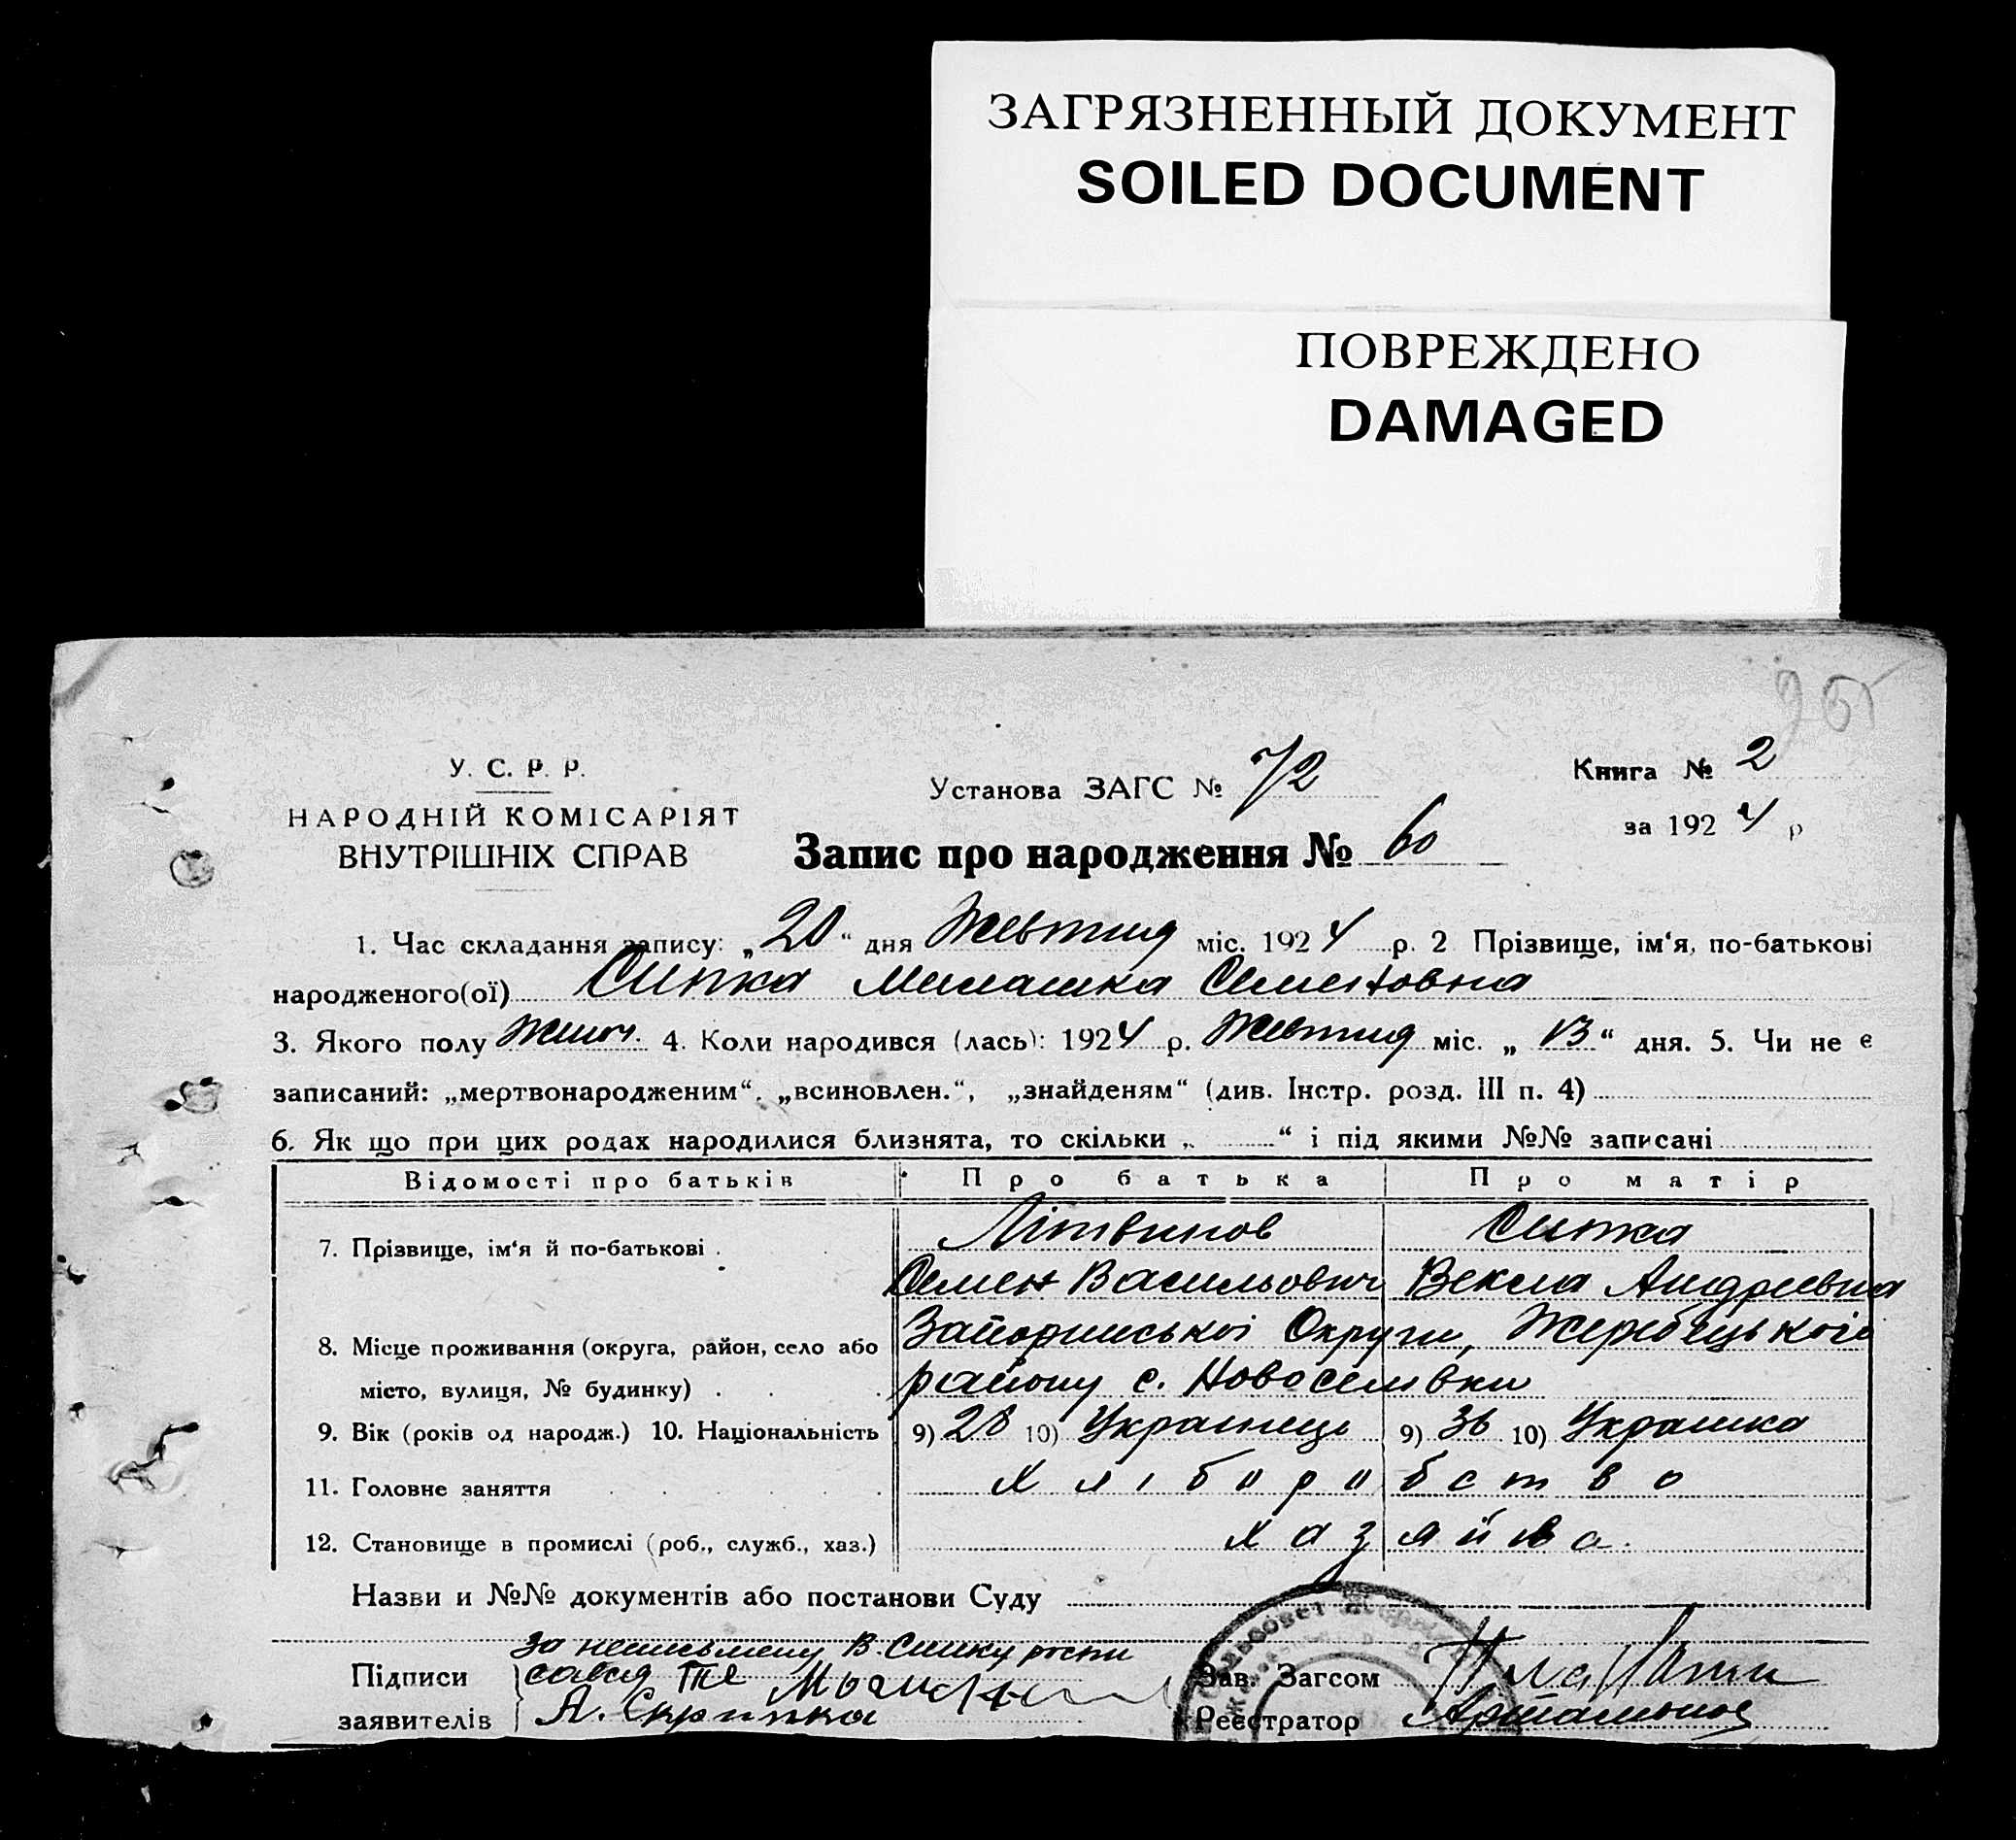 ЗАГРЯЗНЕННЫЙ ДОКУМЕНТ
SOILED DOCUMENT
ПОВРЕЖДЕНО
DAMAGED
У. С. Р. Р.
НАРОДНІЙ КОМІСАРІЯТ
ВНУТРІШНІХ СПРАВ
Установа ЗАГС № 72
Книга № 2
за 1924 р
Запис про народження № 60
1. Час складання запису: „20“ дня Жовтня міс. 1924 р. 2 Прізвище, ім‘я, по-батькові
народженого(ої) Сипка Мелашка Семеновна
3. Якого полу жіноч. 4. Коли народився (лась): 1924 р. Жовтня міс. „13“ дня. 5. Чи не є
записаний: „мертвонародженим“. „всиновлен.“, „знайденям“ (див. Інстр. розд. III п. 4)
6. Як що при цих родах народилися близнята, то скільки „ “ і під якими №№ записані
Відомості про батьків Про батька Про матір
7. Прізвище, ім‘я й по-батькові . Літвинов Сипка
Семен Васильович Векла Андреевна
8. Місце проживання (округа, район, село або Запорижської Округи, Жеребецького
місто, вулиця, № будинку) . району с. Новоселивки
9. Вік (років од народж.) 10. Національність 9) 28 10) Українець 9) 36 10) Українка
11. Головне заняття хліборобство
12. Становище в промислі (роб., служб., хаз.) хазяйва.
Назви и №№ документів або постанови Суду
за неписьмену В. Сипку
Підписи
заявителів А. Скрипка
Зав. Загсом
Реєстратор Артамонов